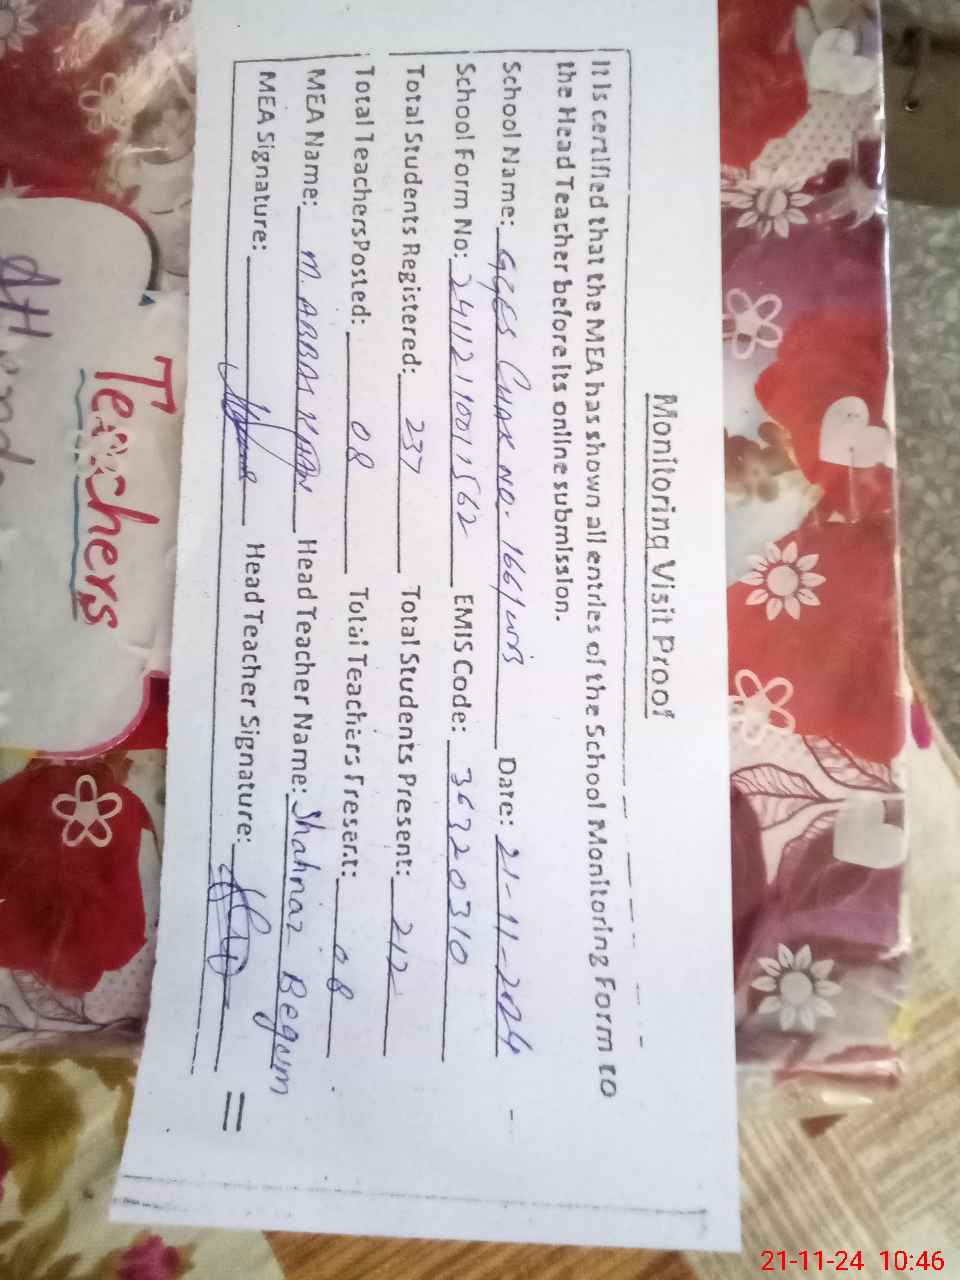 Monitoring Visit Proof
It is certified that the MEA has shown all entries of the School Monitoring Form to
the Head Teacher before its online submission.
School Name: GGES CHAK NO. 166/WB Date: 21-11-2024
School Form No: 2411211001562 EMIS Code: 36320310
Total Students Registered: 237 Total Students Present: 212
Total TeachersPosted: 08 Total Teachers Present: 08
MEA Name: M. ABBAS KHAN Head Teacher Name: Shahnaz Begum
MEA Signature: Head Teacher Signature:
Teachers
21-11-24 10:46